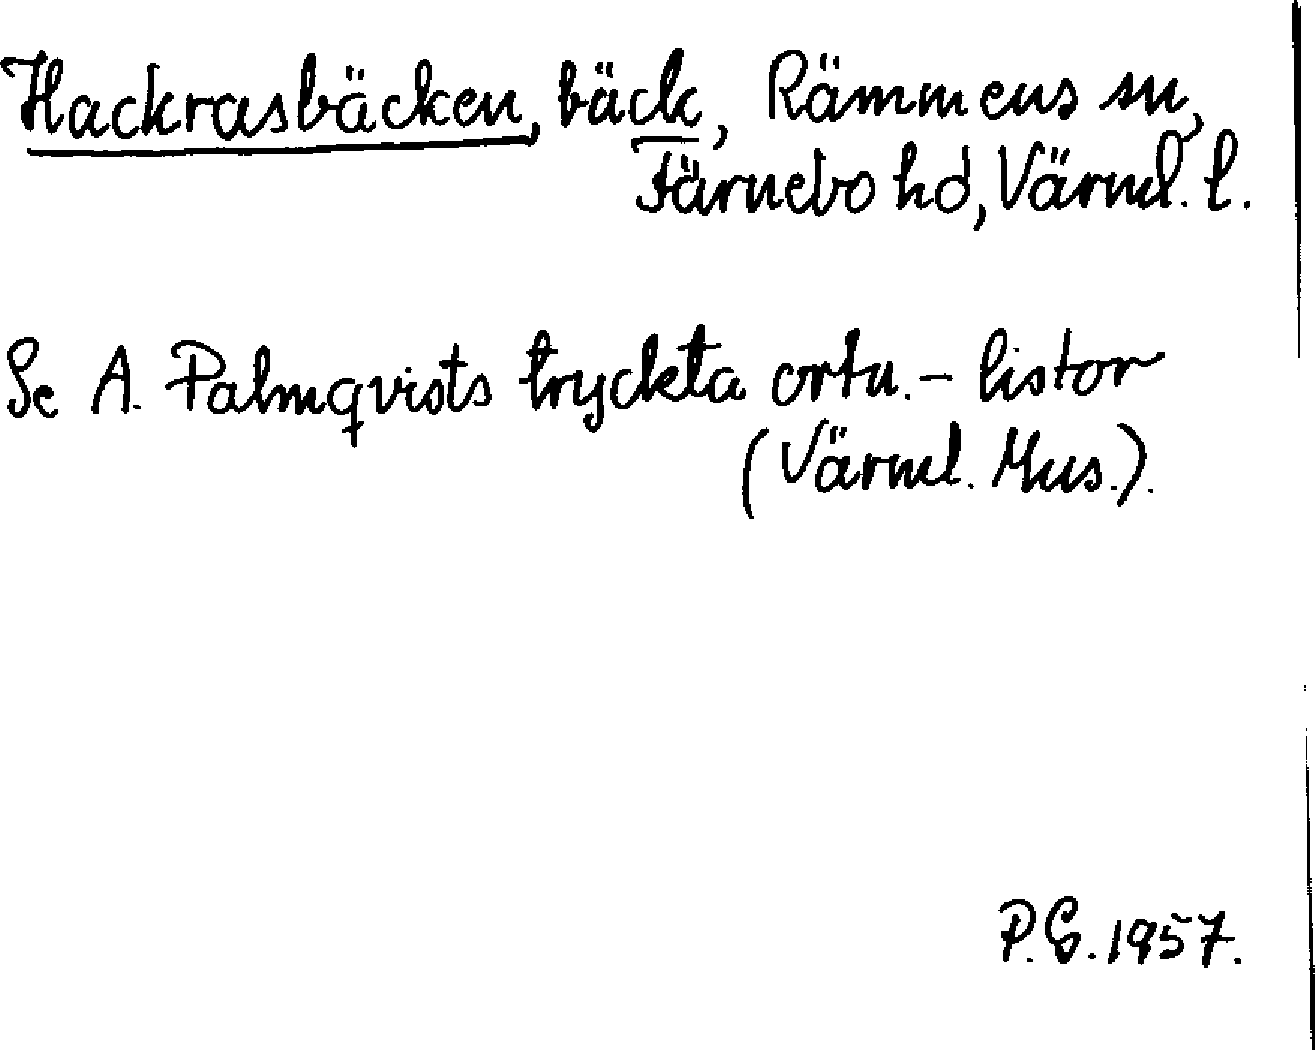 Hackrasbäcken, bäck, Rämmens sn,
Färnebo hd, Värml. l.
Se A. Palmqvists tryckta ortn.- listor
(Värml. Mus.).
P.G. 1957.